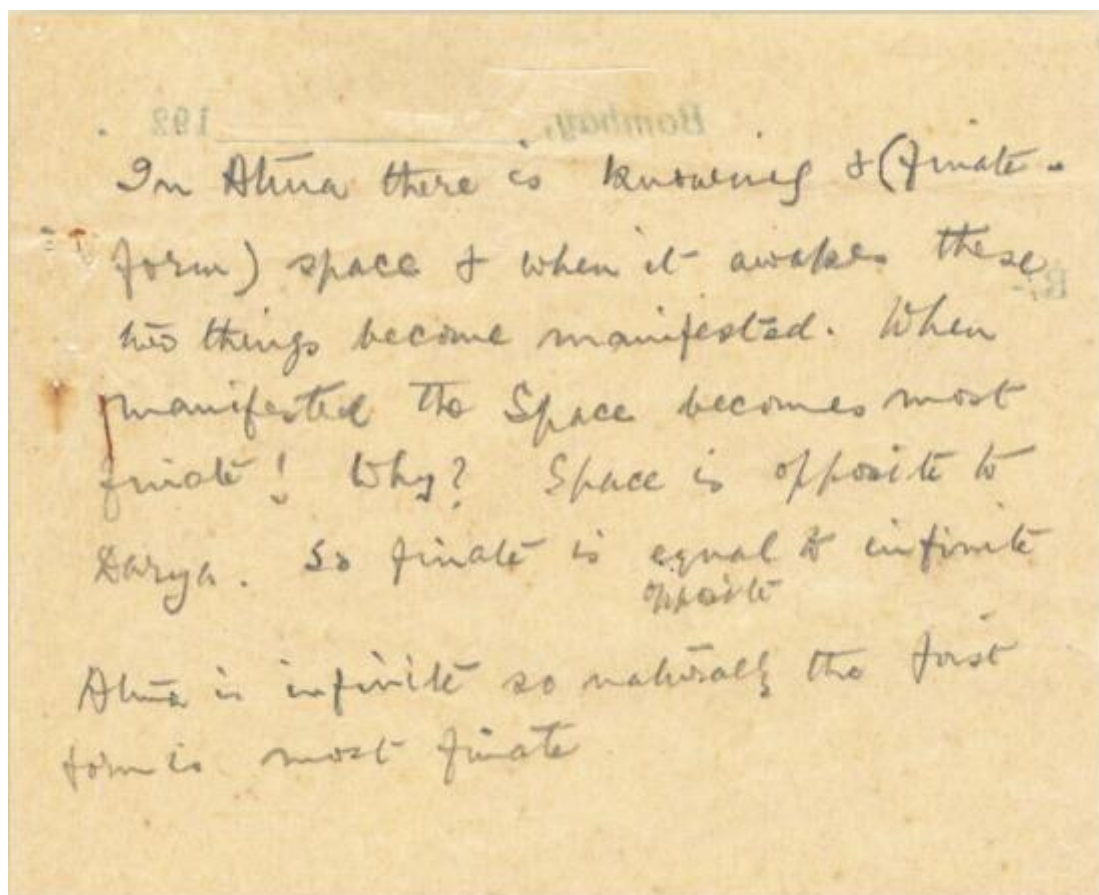 Bombay, 192
In Atma there is knowing & (finate-
form) space & when it awakes these
two things become manifested. When
manifested the Space becomes most
finate! Why? Space is opposite to
Darya. So finate is equal to infinite
opposite
Atma is infinite so naturally the first
form is most finate